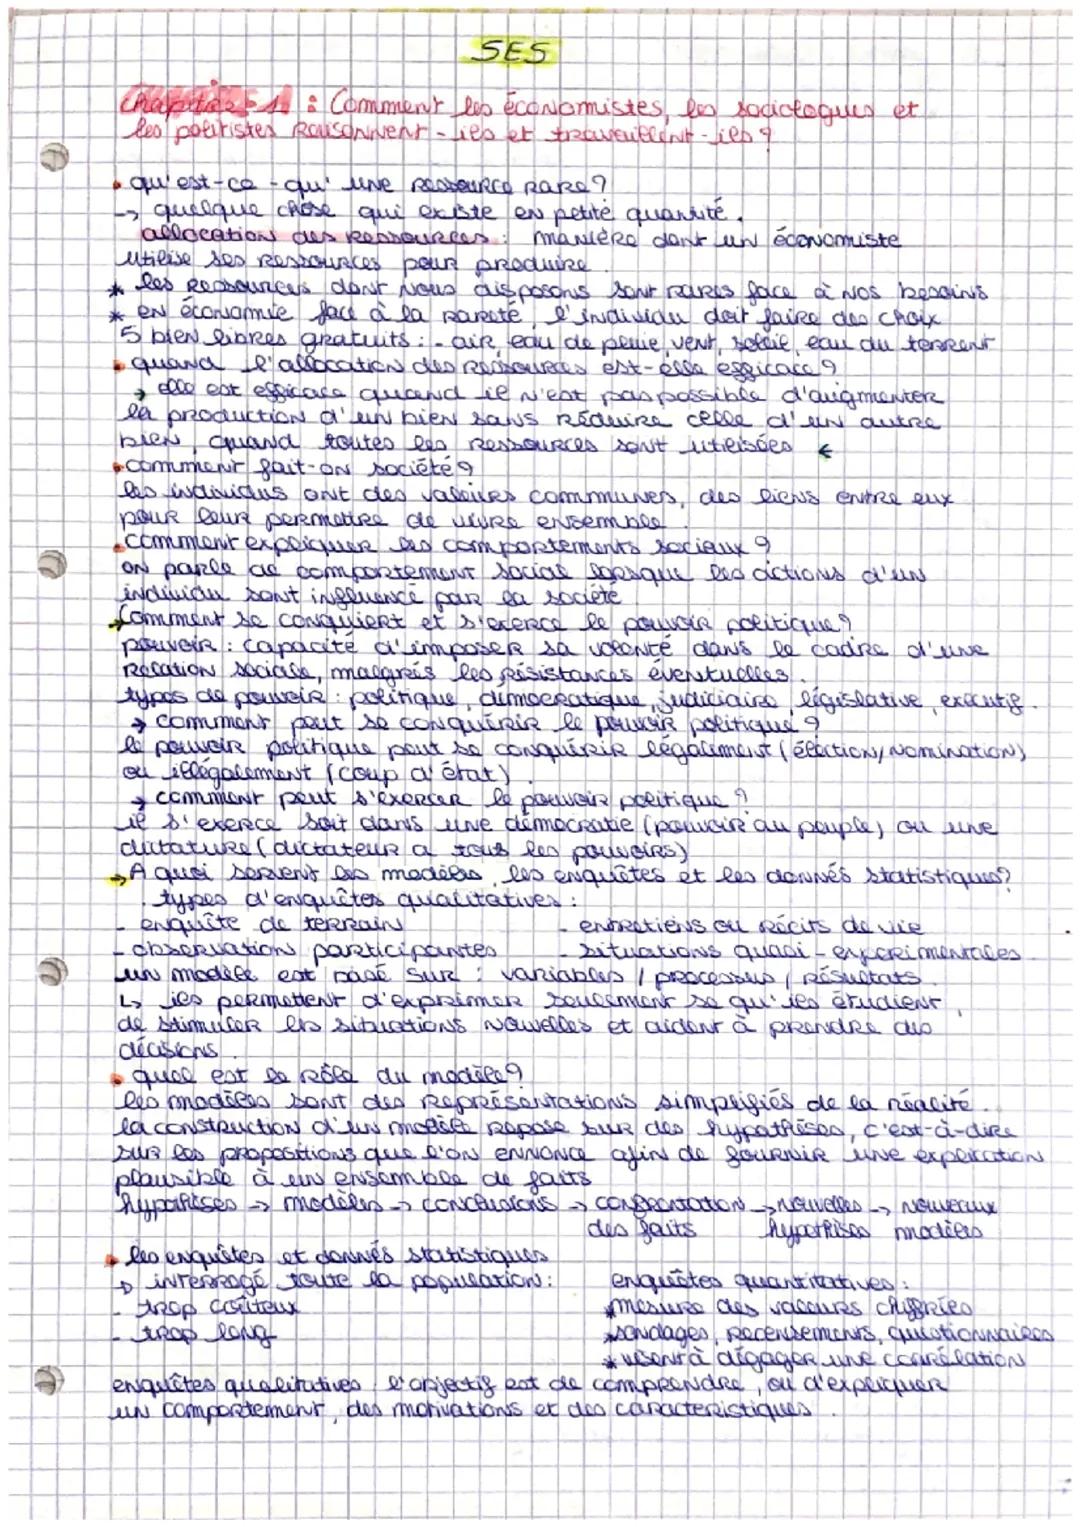 SES
Chapitre 1 : Comment les économistes, les sociologues et
les politistes raisonnent-ils et travaillent-ils ?
• qu'est-ce-qu'une ressource rare ?
→ quelque chose qui existe en petite quantité.
allocation des ressources : manière dont un économiste
utilise ses ressources pour produire.
* les ressources dont nous disposons sont rares face à nos besoins
* en économie face à la rareté, l'individu doit faire des choix
5 bien libres gratuits : - air, eau de pluie, vent, soleil, eau du torrent
• quand l'allocation des ressources est-elle efficace ?
→ elle est efficace quand il n'est pas possible d'augmenter
la production d'un bien sans réduire celle d'un autre
bien, quand toutes les ressources sont utilisées ←
• comment fait-on société ?
les individus ont des valeurs communes, des liens entre eux
pour leur permettre de vivre ensemble.
• comment expliquer les comportements sociaux ?
on parle de comportement social lorsque les actions d'un
individu sont influencé par la société
→ Comment se conquiert et s'exerce le pouvoir politique ?
pouvoir : capacité d'imposer sa volonté dans le cadre d'une
relation sociale, malgrés les résistances éventuelles.
types de pouvoir : politique, démocratique, judiciaire, législative, exécutif.
→ comment peut se conquérir le pouvoir politique ?
le pouvoir politique peut se conquérir légalement (élection/nomination)
ou illégalement (coup d'état).
→ comment peut s'exercer le pouvoir politique ?
il s'exerce soit dans une démocratie (pouvoir au peuple) ou une
dictature (dictateur a tous les pouvoirs)
→ A quoi servent les modèles, les enquêtes et les donnés statistiques ?
. types d'enquêtes qualitatives :
- enquête de terrain - entretiens ou récits de vie
- observations participantes - situations quasi-experimentales
un modèle est basé sur : variables / processus / résultats.
↳ ils permettent d'exprimer seulement se qu'ils étudient,
de stimuler les situations nouvelles et aident à prendre des
décisions.
• quel est le rôle du modèle ?
les modèles sont des représentations simplifiés de la réalité.
la construction d'un modèle repose sur des hypothèses, c'est-à-dire
sur les propositions que l'on ennonce afin de fournir une explication
plausible à un ensemble de faits
hypothèses → modèles → conclusions → confrontation → nouvelles → nouveaux
des faits hypothèses modèles
• les enquêtes et donnés statistiques
→ interrogé toute la population : enquêtes quantitatives :
- trop coûteux * mesure des valeurs chiffrées
- trop long * sondages, recensements, questionnaires
* visent à dégager une corrélation
enquêtes qualitatives : l'objectif est de comprendre, ou d'expliquer
un comportement, des motivations et des caracteristiques.